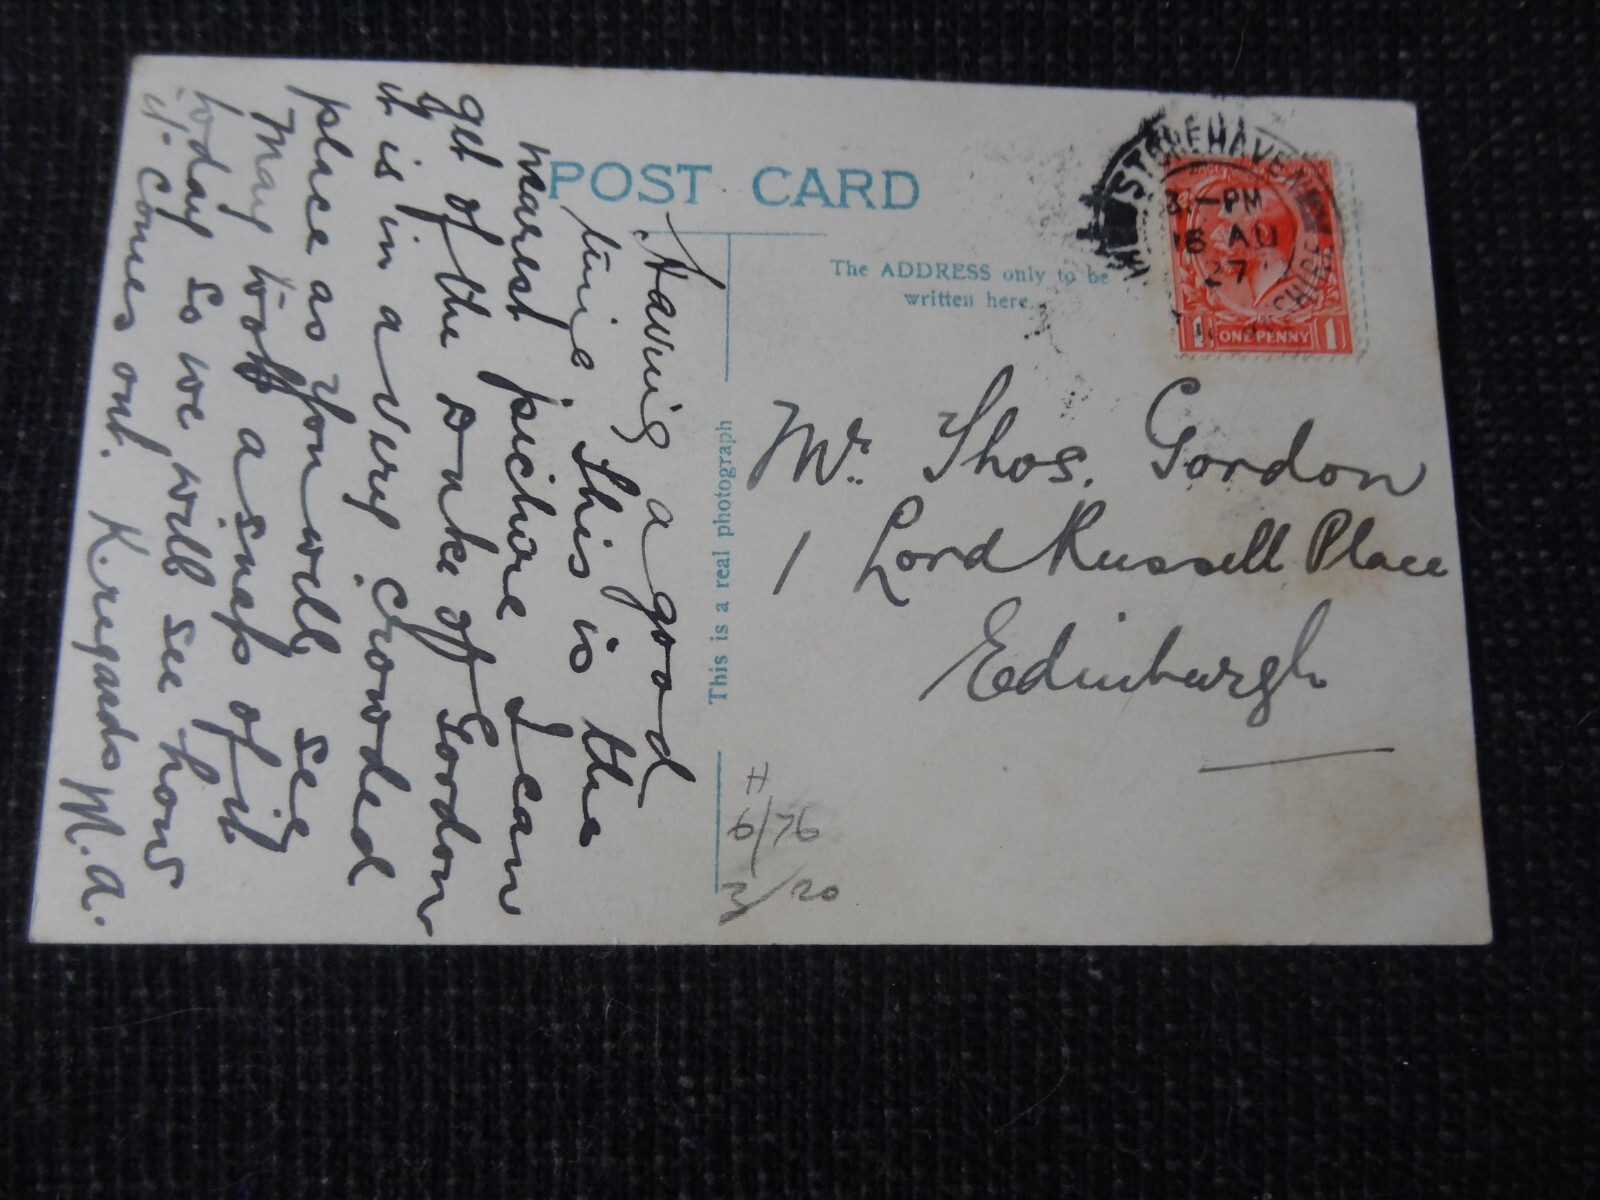 POST CARD
The ADDRESS only to be
written here.
This is a real photograph
STONEHAVEN
3 - PM
AU
27
ONE PENNY
1 1
Having a good
time, this is the
nearest picture I can
get of the Duke of Gordon
it is in a very crowded
place as you will see
May took a snap of it
today so we will see how
it comes out. Kregards M.A.
Mr. Thos. Gordon
1 Lord Russell Place
Edinburgh
6/76
/20